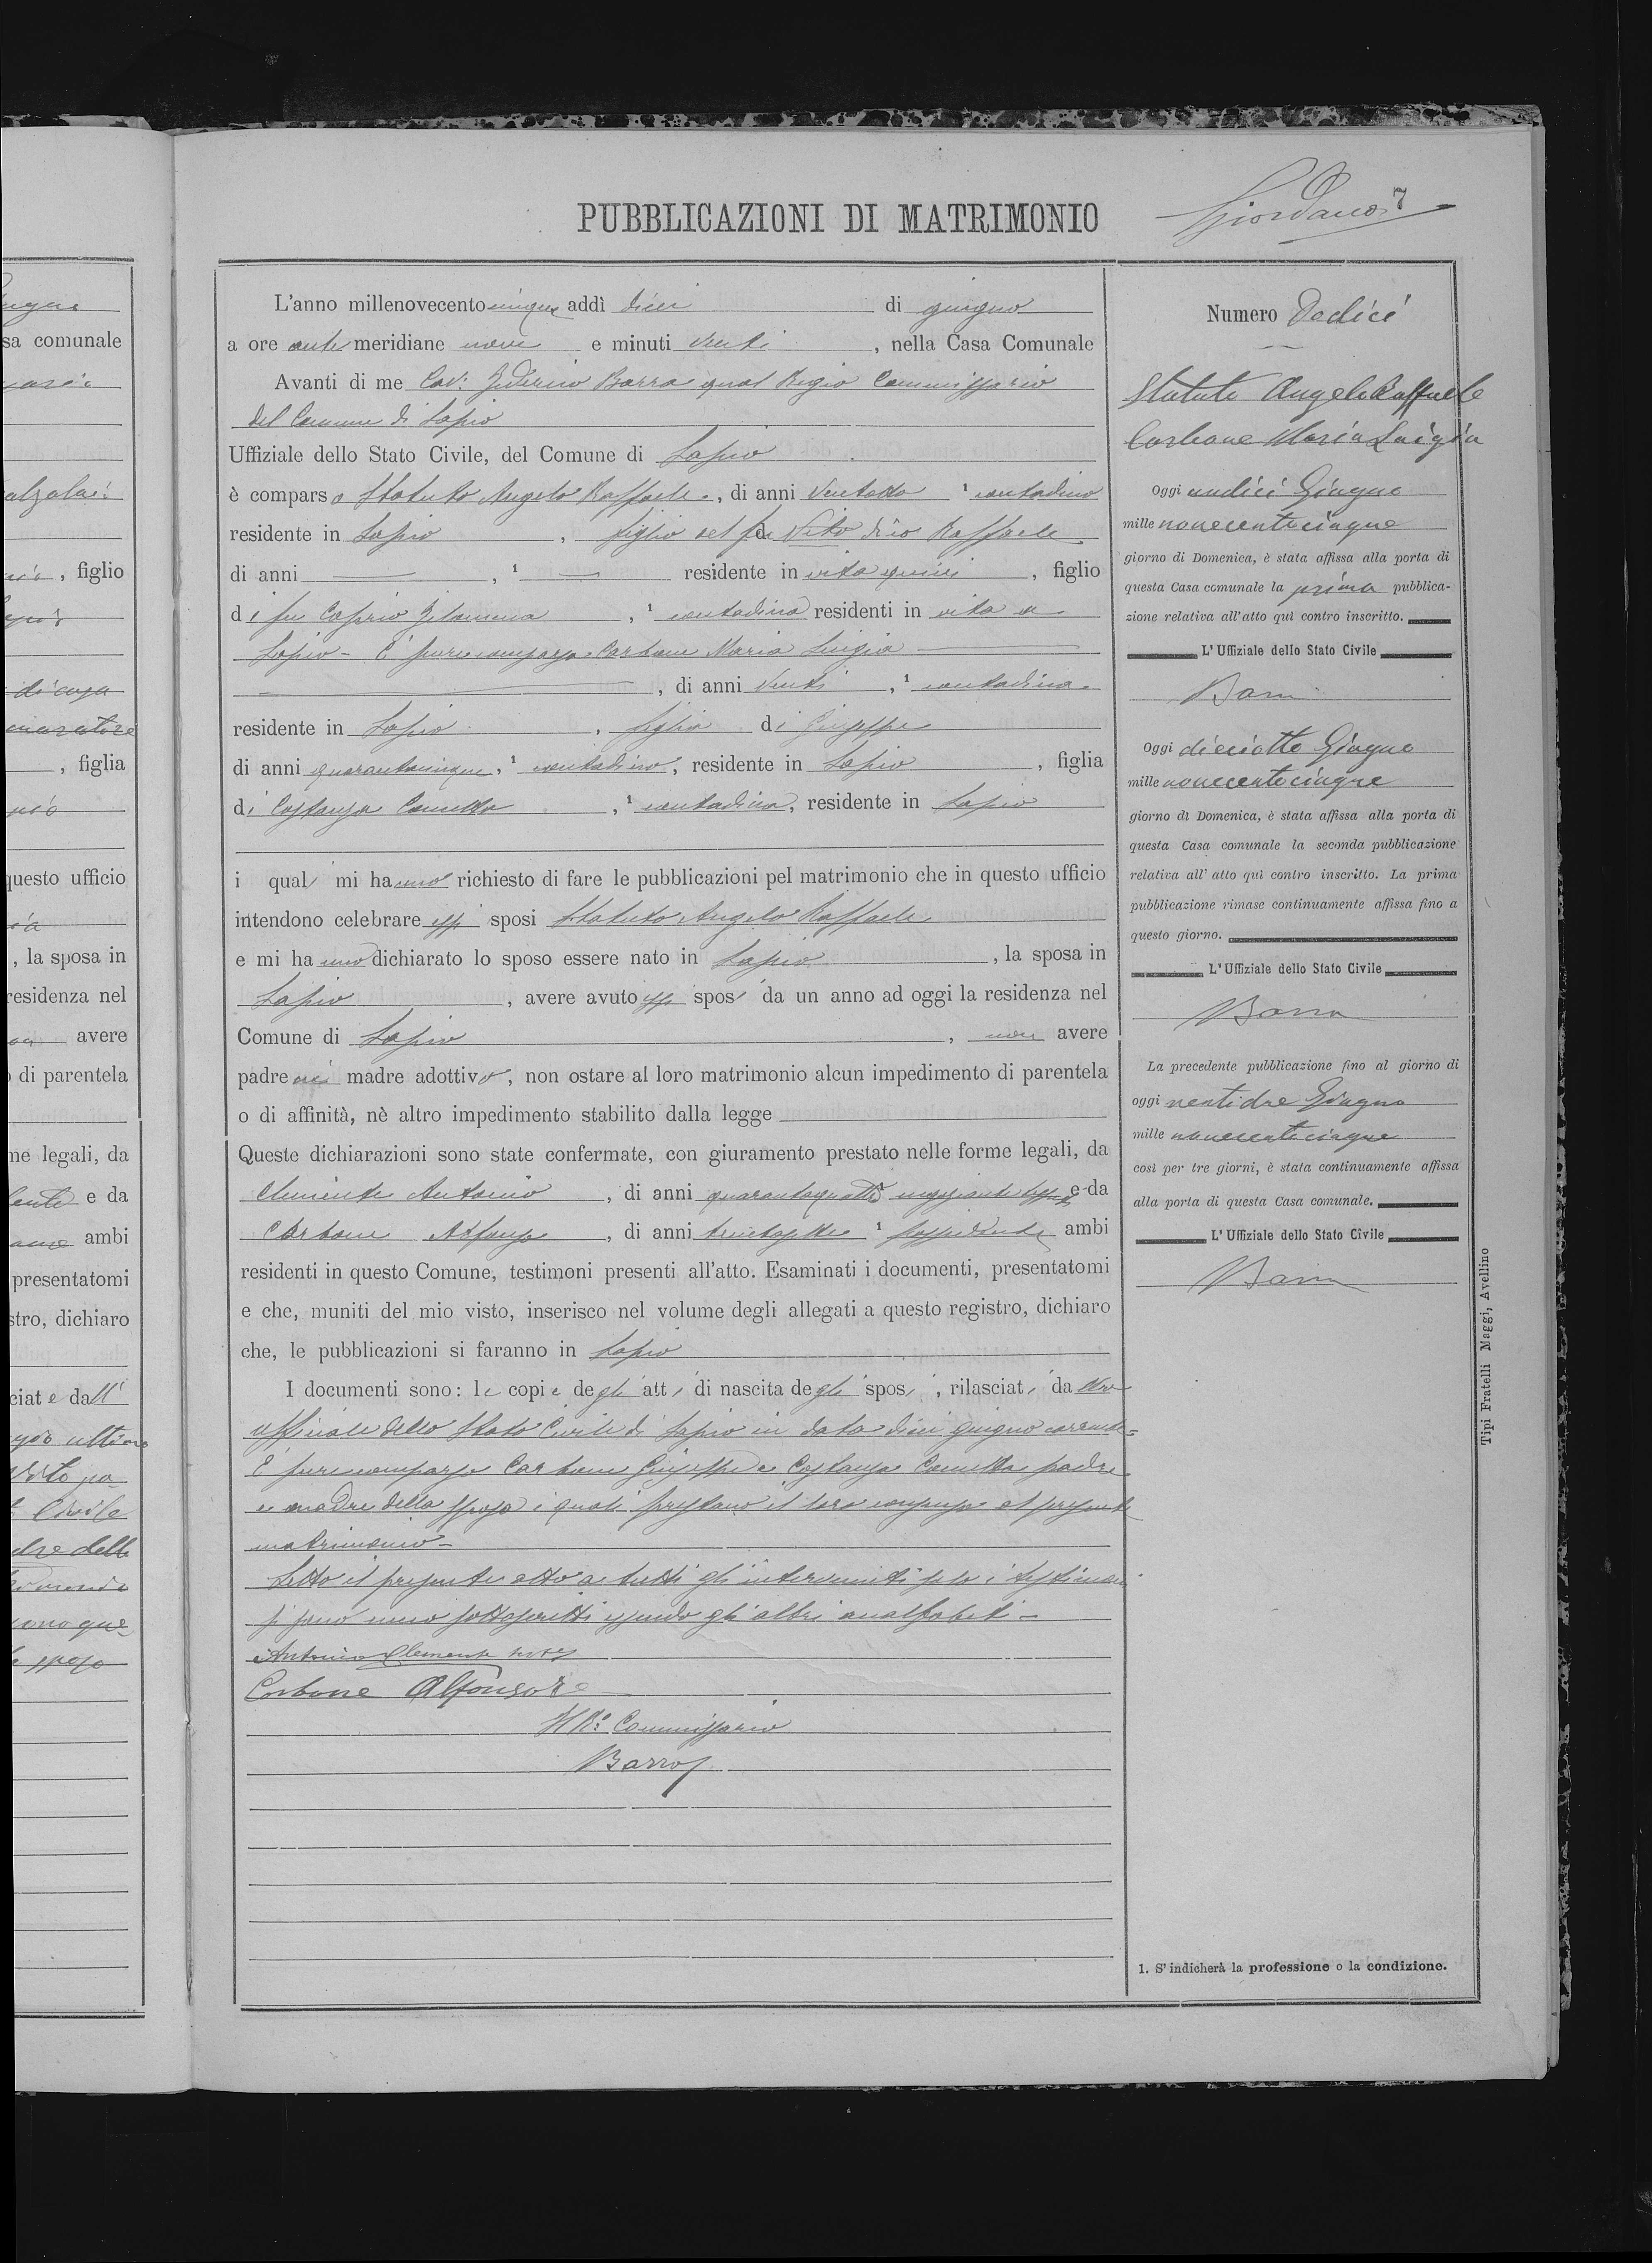 PUBBLICAZIONI DI MATRIMONIO
Giordano 7
L'anno millenovecentocinque addì dieci di giugno
a ore antimeridiane nove e minuti venti, nella Casa Comunale
Avanti di me Cav: Federico Barra qual Regio Commissario
del Comune di Lapio
Uffiziale dello Stato Civile, del Comune di Lapio
è comparso Statuto Angelo Raffaele, di anni ventotto ¹ contadino
residente in Lapio, figlio del fu Vito dico Raffaele
di anni —, ¹ — residente in vita quivi, figlio
di fu Caprio Filomena, ¹ contadina residenti in vita a
Lapio - È pure comparsa Carbone Maria Luigia
, di anni venti, ¹ contadina
residente in Lapio, figlia di Giuseppe
di anni quarantacinque, ¹ contadino, residente in Lapio, figlia
di Costanza Carmella, ¹ contadina, residente in Lapio
i quali mi hanno richiesto di fare le pubblicazioni pel matrimonio che in questo ufficio
intendono celebrare essi sposi Statuto Angelo Raffaele
e mi hanno dichiarato lo sposo essere nato in Lapio, la sposa in
Lapio, avere avuto essi sposi da un anno ad oggi la residenza nel
Comune di Lapio, non avere
padre nè madre adottivo, non ostare al loro matrimonio alcun impedimento di parentela
o di affinità, nè altro impedimento stabilito dalla legge
Queste dichiarazioni sono state confermate, con giuramento prestato nelle forme legali, da
Clemente Antonio, di anni quarantaquattro negoziante e da
Carbone Alfonso, di anni trentasette ¹ possidente ambi
residenti in questo Comune, testimoni presenti all'atto. Esaminati i documenti, presentatomi
e che, muniti del mio visto, inserisco nel volume degli allegati a questo registro, dichiaro
che, le pubblicazioni si faranno in Lapio
I documenti sono: le copie degli atti di nascita degli sposi, rilasciati da
ufficiale dello Stato Civile di Lapio in data dieci giugno corrente=
È pure comparso Carbone Giuseppe e Costanza Carmella padre
e madre della sposa i quali prestano il loro consenso al presente
matrimonio-
Letto il presente atto a tutti gli intervenuti solo i testimoni
si sono meco sottoscritti essendo gli altri analfabeti-
Antonio Clemente
Carbone Alfonso
Il R.º Commissario
Barra
Numero Dodici
Statuto Angelo Raffaele
Carbone Maria Luigia
Oggi undici Giugno
mille novecentocinque
giorno di Domenica, è stata affissa alla porta di
questa Casa comunale la prima pubblica-
zione relativa all'atto quì contro inscritto.
L'Uffiziale dello Stato Civile
Barra
Oggi dieciotto Giugno
mille novecentocinque
giorno di Domenica, è stata affissa alla porta di
questa Casa comunale la seconda pubblicazione
relativa all'atto quì contro inscritto. La prima
pubblicazione rimase continuamente affissa fino a
questo giorno.
L'Uffiziale dello Stato Civile
Barra
La precedente pubblicazione fino al giorno di
oggi ventidue Giugno
mille novecentocinque
così per tre giorni, è stata continuamente affissa
alla porta di questa Casa comunale.
L'Uffiziale dello Stato Civile
Barra
1. S'indicherà la professione o la condizione.
Tipi Fratelli Maggi, Avellino
sa comunale
, figlio
di casa
, figlia
questo ufficio
, la sposa in
residenza nel
avere
di parentela
ne legali, da
e da
ambi
presentatomi
stro, dichiaro
ciate dall'